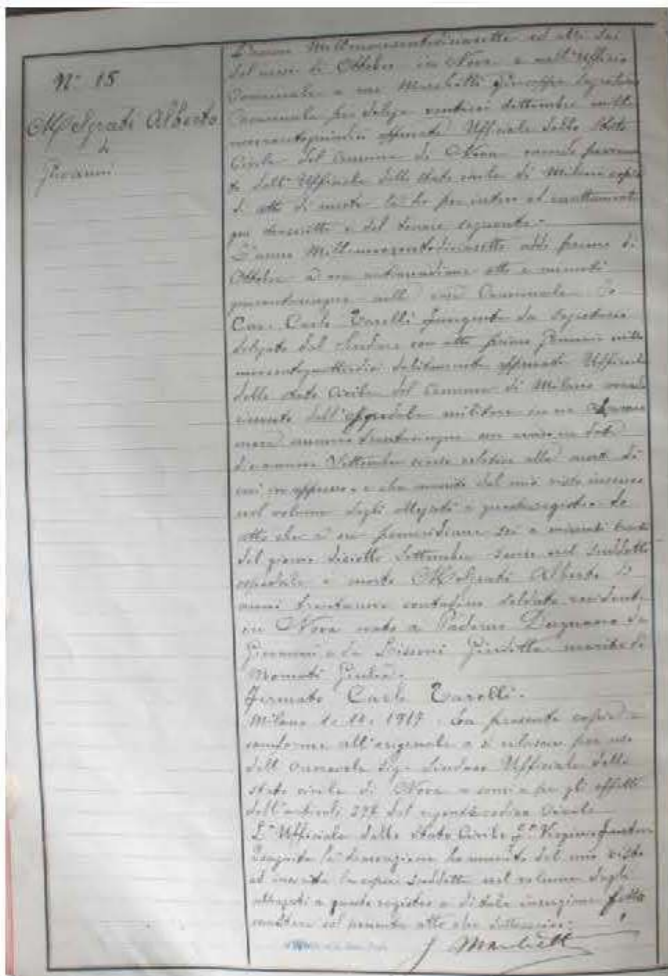 N° 15
Melgrati Alberto
di
Giovanni
L'anno Millenovecentodiciasette ed alli sei
del mese di Ottobre in Nova e nell'Ufficio
Comunale a me Marchetti Giuseppe Segretario
Comunale per delega ventisei settembre mille
novecentoquindici approvata Ufficiale dello Stato
Civile del Comune di Nova essendo pervenu
to dall'Ufficiale dello stato civile di Milano copia
di atto di morte la ho per intero ed esattamente
qui trascritta e del tenore seguente.
L'anno Millenovecentodiciasette addì primo di
Ottobre a ore antimeridiane otto e minuti
quarantacinque nella casa Comunale Io
Cav. Carlo Tarelli funzionante da Segretario
delegato dal Sindaco con atto primo Gennaio mille
novecentoquattordici debitamente approvato Ufficiale
dello stato Civile del Comune di Milano
dall'ospedale militare in via
numero trentacinque un avviso in data
diciannove Settembre scorso relativo alla morte di
cui in appresso e che munito del mio visto inserisco
nel volume degli allegati a questo registro do
atto che a ore pomeridiane sei e minuti trenta
del giorno diciotto Settembre scorso nel suddetto
ospedale è morto Melgrati Alberto di
anni trentanove contadino soldato residente
in Nova nato a Paderno Dugnano da
Giovanni e da Lissoni Giuditta marito di
Giulia.
Firmato Carlo Tarelli.
Milano 1. 10. 1917. La presente copia è
conforme all'originale e si rilascia per uso
dell'onorevole Sig. Sindaco Ufficiale dello
stato civile di Nova a sensi e per gli effetti
dell'articolo 397 del vigente codice Civile
L'Ufficiale dello Stato Civile F°
Eseguita la trascrizione ho munito del mio visto
ed inserita la copia suddetta nel volume degli
allegati a questo registro e di tale inserzione fatta
constare col presente atto che sottoscrivo:
G Marchetti